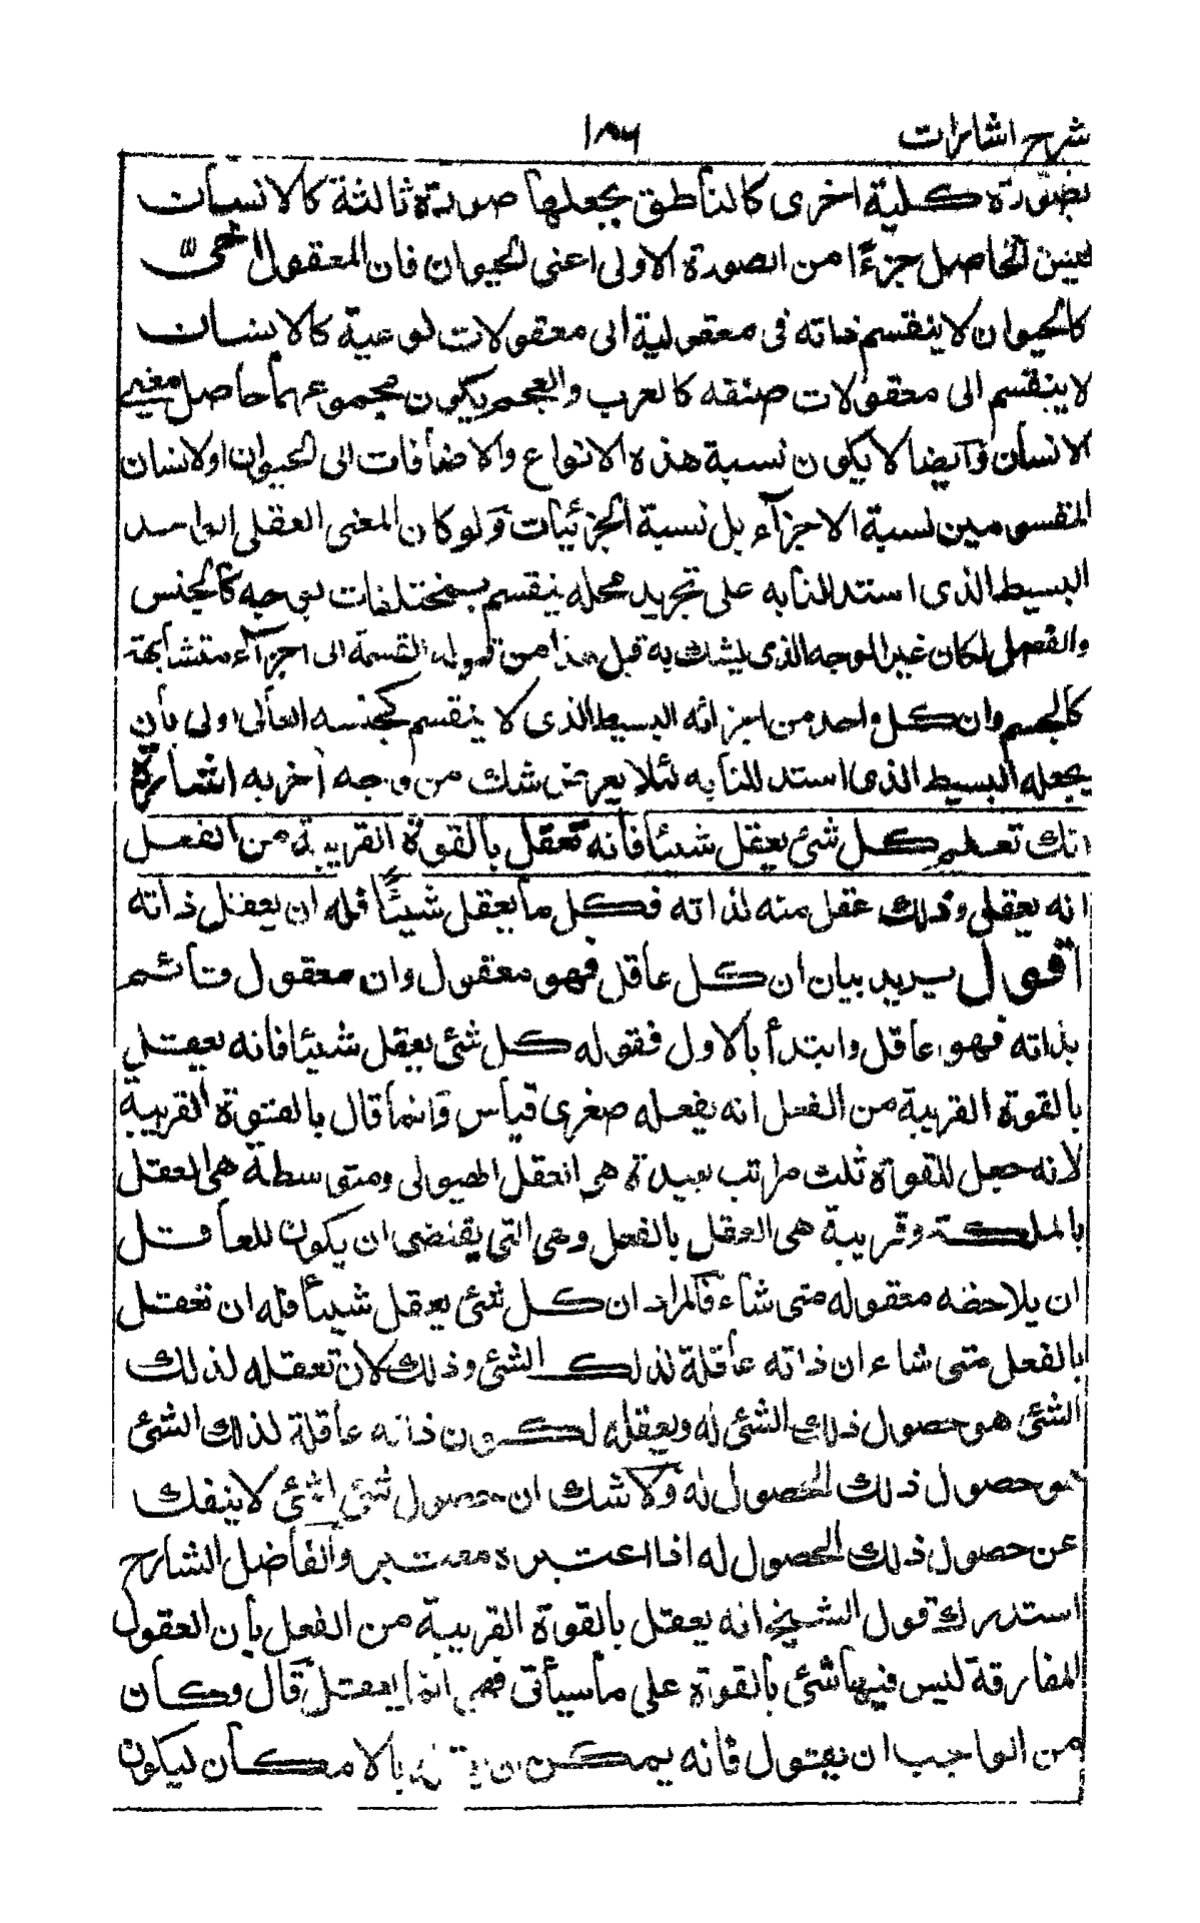 شرح اشارات ١٨٦
بصورة كلية اخرى كالناطق يجعلها صورة ثالثة كالانسان
ليس الحاصل جزءًا من الصورة الاولى اعنى الحيوان فان المعقول
كالحيوان لا ينقسم ذاته فى معقولية الى معقولات نوعية كالانسان
لا ينقسم الى معقولات صنفه كالعرب والعجم يكون مجموعهما حاصل معنى
الانسان وايضا لا يكون نسبة هذه الانواع والاضافات الى الحيوان اولانسان
المنقسومين نسبة الاجزآء بل نسبة الجزئيات ولو كان المعنى العقلى الواحد
البسيط الذى استدللنا به على تجريد محله ينقسم بمختلفات بوجه كالجنس
والفصل لكان غير الوجه الذى يشك به قبل هذا من قبوله القسمة الى اجزآء متشابهة
كالجسم وان كل واحد من اجزائه البسيط الذى لا ينقسم كجنسه العالى اولى بأن
يجعله البسيط الذى استدللنا به لئلا يعرض شك من وجه آخر به اشارة
انك تعلم كل شئ يعقل شيئا فانه تعقل بالقوة القريبة من الفعل
انه يعقل وذلك عقل منه لذاته فكل ما يعقل شيئًا فله ان يعقل ذاته
اقول يريد بيان ان كل عاقل فهو معقول وان معقول قائم
بذاته فهو عاقل وابتدأ بالاول فقوله كل شئ يعقل شيئا فانه يعقل
بالقوة القريبة من الفعل انه يفعله صغرى قياس وانما قال بالقوة القريبة
لانه جعل للقوة ثلث مراتب بعيدة هى العقل الهيولى ومتوسطة هى العقل
بالملكة وقريبة هى العقل بالفعل وهى التى يقتضى ان يكون للعاقل
ان يلاحضه معقوله متى شاء فالمراد ان كل شئ يعقل شيئا فله ان تعقل
بالفعل متى شاء ان ذاته عاقلة لذلك الشئ وذلك لان تعقله لذلك
الشئ هو حصول ذلك الشئ له وبعقله لكون ذاته عاقلة لذلك الشئ
هو حصول ذلك الحصول له ولا شك ان حصول شئ لشئ لا ينفك
عن حصول ذلك الحصول له اذا اعتبره معتبر والفاضل الشارح
استدرك قول الشيخ انه يعقل بالقوة القريبة من الفعل بان العقول
المفارقة ليس فيها شئ بالقوة على ماسيأتى فهى انما يعقل قال وكان
من الواجب ان يقول فانه يمكن ان بالامكان ليكون